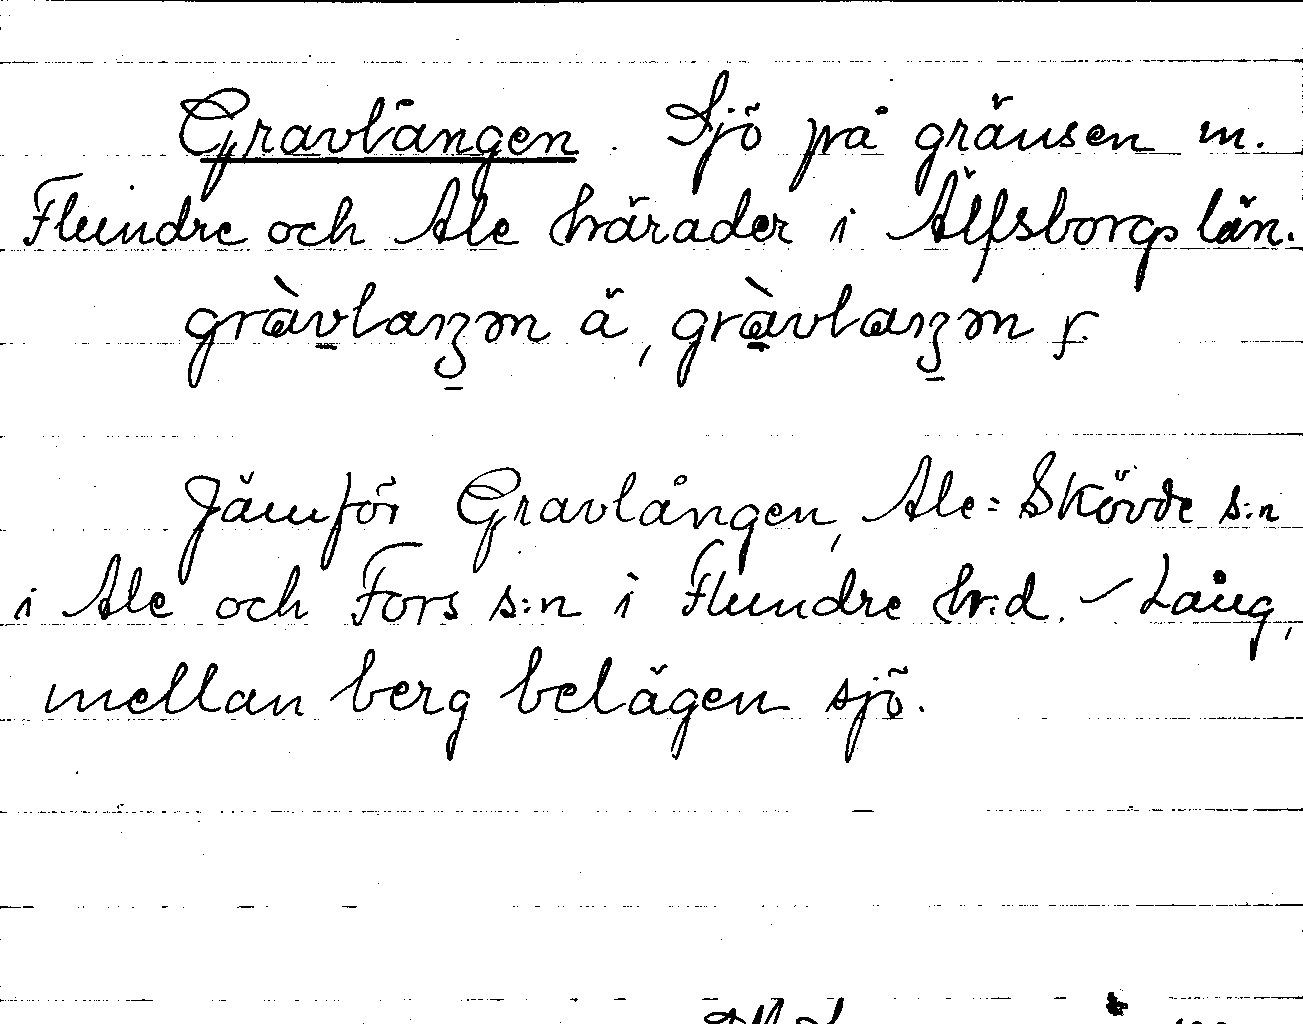 Gravlången. Sjö på gränsen m.
Flundre och Ale härader i Älfsborgs län.
Jämför Gravlången, Ale-Skövde s:n
i Ale och Fors s:n i Flundre hr:d. – Lång,
mellan berg belägen sjö.